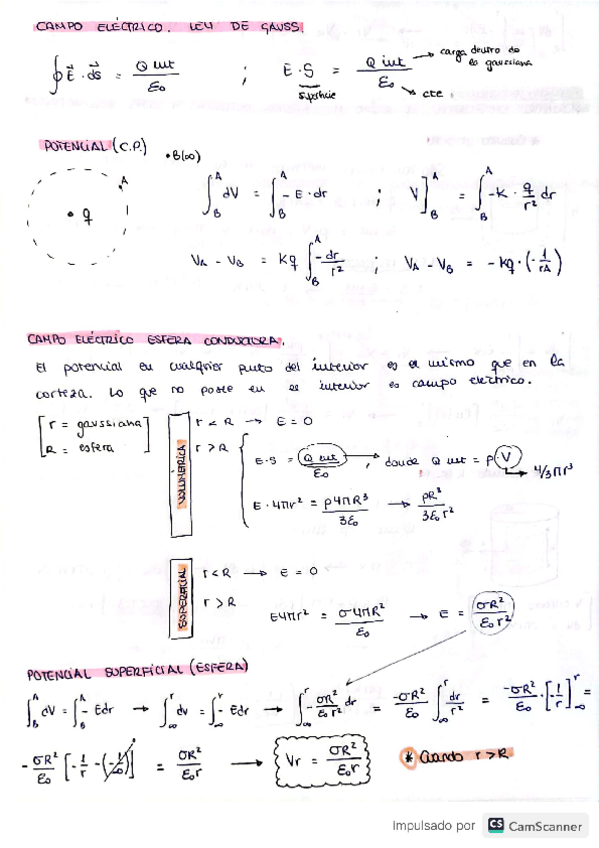 CAMPO ELÉCTRICO. LEY DE GAUSS.
∮ E⃗ · ds⃗ = Q int / ε₀ ; E · S = Q int / ε₀
carga dentro de la gaussiana
superficie
cte.
POTENCIAL (C.P.)
• B(∞)
A
q
∫_B^A dV = ∫_B^A - E · dr ; V]_B^A = ∫_B^A -K · q/r² dr
V_A - V_B = Kq ∫_B^A -dr/r² ; V_A - V_B = -Kq · (-1/r_A)
CAMPO ELÉCTRICO ESFERA CONDUCTORA.
El potencial en cualquier punto del interior es el mismo que en la
corteza. Lo que no posee en el interior es campo eléctrico.
[r = gaussiana
R = esfera]
VOLUMÉTRICA
r < R → E = 0
r > R
E · S = Q int / ε₀ , donde Q int = ρ · V → 4/3πr³
E · 4πr² = ρ4πR³ / 3ε₀ → ρR³ / 3ε₀r²
SUPERFICIAL
r < R → E = 0
r > R
E4πr² = σ4πR² / ε₀ → E = σR² / ε₀r²
POTENCIAL SUPERFICIAL (ESFERA)
∫_B^A dV = ∫_B^A - Edr → ∫_∞^r dv = ∫_∞^r - Edr → ∫_∞^r - σR²/ε₀r² dr = -σR²/ε₀ ∫_∞^r dr/r² = -σR²/ε₀ · [-1/r]_∞^r =
- σR²/ε₀ [-1/r - (-1/∞)] = σR²/ε₀r → Vr = σR²/ε₀r
* Cuando r > R
Impulsado por CS CamScanner